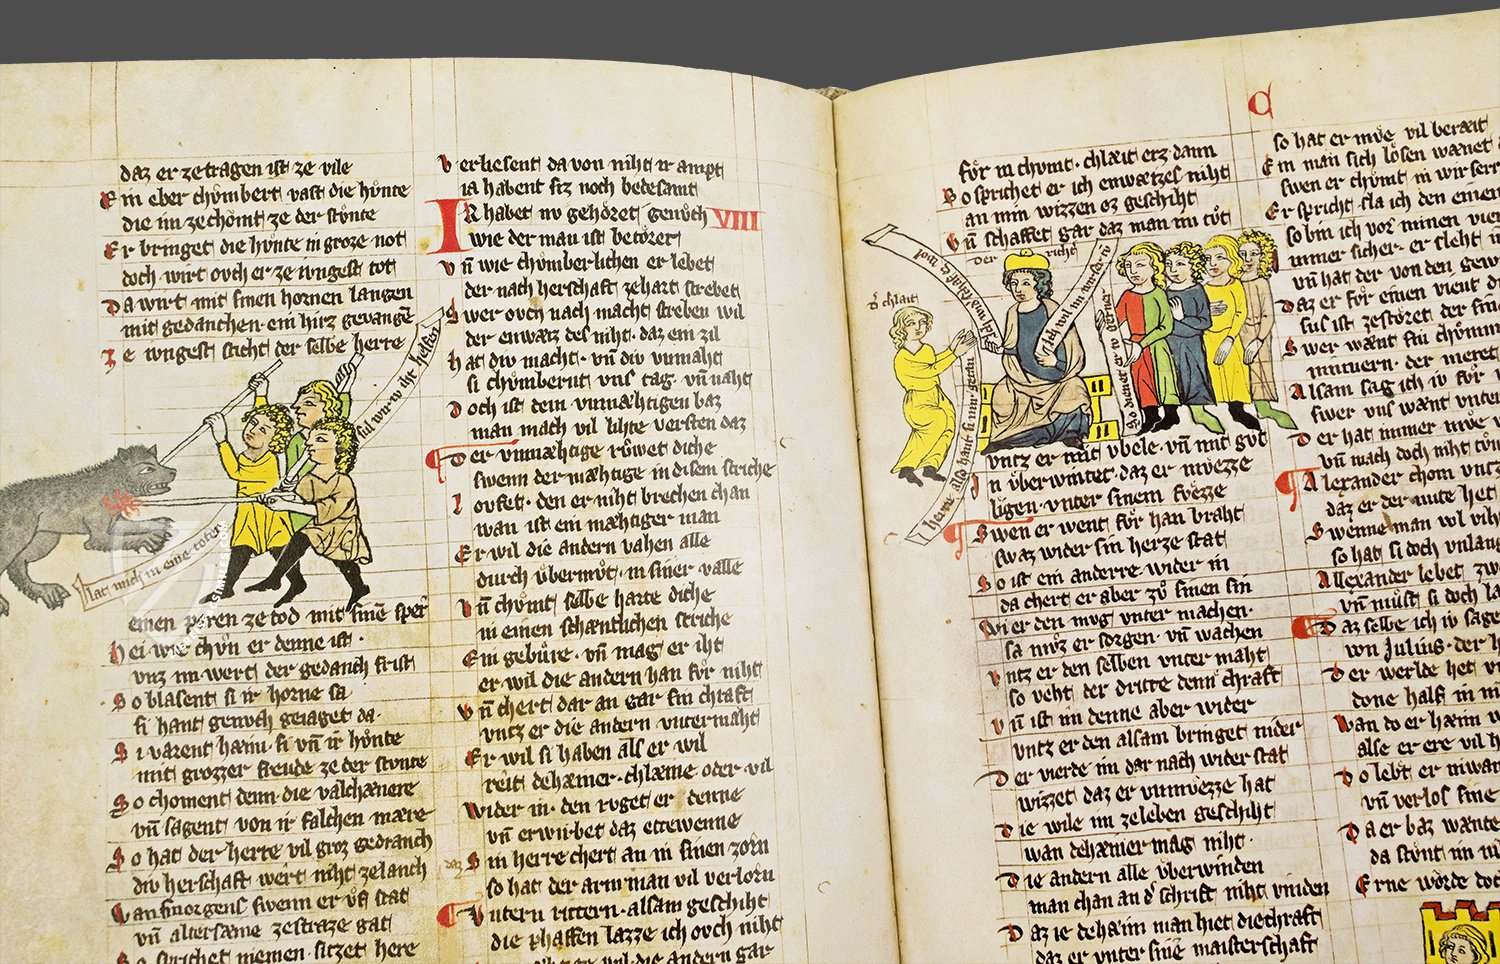 daz er ze tragen ist ze vile
Ein eber chv̊mbert vast die hv̊nte
die im ze chomt ze der stv̊nte
Er bringet die hv̊nte in groze not
doch wirt ovch er ze ivngest tot
Da wirt mit sinen hornen langen
mit gedanchen ein hirz gevangē
Ze ivngest sticht der selbe herre
sul wir iv iht helfen
lat mich in eine toten
einen peren ze tod mit sinē sper
Hei wie chv̊n er denne ist
vnz im wert der gedanch frist
So blasent si ir horne sa
si hant genvch geiaget da
Si varent haim si vn̄ ir hv̊nte
mit grozzer freude ze der stvnte
So choment denn die valchænere
vn̄ sagent von ir falchen mære
So hat der herre vil groz gedranch
div herschaft wert niht ze lanch
Wan smorgens swenn er v̊f stat
vn̄ altersæine ze straze gat
So sprichet niemen sitzet here
Verliesent da von niht ir ampt
ia habent sirz noch bedesamt
IR habet nv gehoret genv̊ch VIII
wie der man ist betoret
vn̄ wie chv̊mberlichen er lebet
der nach herschaft ze hart strebet
Swer ovch nach macht streben wil
der enwæiz des niht daz ein zil
hat div macht vn̄ div vnmaht
si chv̊mbernt vns tag vn̄ naht
Doch ist dem vnmæhtigen baz
man mach vil lihte versten daz
Der vnmæhtige rv̊wet diche
swenn der mæhtige in disem striche
lovfet den er niht brechen chan
wan ist ein mæhtiger man
Er wil die andern vahen alle
durch v̊bermv̊t in siner valle
vn̄ chv̊mt selbe harte diche
in einen schæntlichen striche
Ein gebv̊re vn̄ mag er iht
er wil die andern han fv̊r niht
vn̄ chert dar an gar sin chraft
vntz er die andern vntermaht
Er wil si haben als er wil
reit dehæiner chlæine oder vil
wider in den rvget er denne
vn̄ erwirbet daz etewenne
daz
Sin herre chert an in sinen zorn
so hat der arm man vil verlorn
Vntern rittern alsam geschiht
die phaffen lazze ich ovch niht
fv̊r in chvmt chlæit erz dann
So sprichet er ich enwæizes niht
an min wizzen ez geschiht
vn̄ schaffet gar daz man im tot
der richt
d̾ chlait
ich wil im wider iv
So diener er iv gerner
herre also hant si mir getan
vntz er mit vbele vn̄ mit gvt
In v̊berwintet daz er mv̊zze
ligen vnter sinem fv̊zze
Swen er went fv̊r han braht
swaz wider sin herze stat
So ist ein anderre wider in
da chert er aber zv̊ sinen sin
wi er den mvg vnter machen
sa mv̊z er sorgen vn̄ wachen
vntz er den selben vnter maht
so veht der dritte denn chraft
vn̄ ist im denne aber wider
vntz er den alsam bringet nider
Der vierde im dar nach wider stat
wizzet daz er vnmv̊zze hat
Die wile im ze leben geschiht
wan dehæiner mag niht
Die andern alle v̊berwinden
man chan an d̾ schrift niht vinden
Daz ie dehæin man hiet die chraft
daz er vnter sinē maisterschaft
C
so hat er mv̊e vil beræit
Ein man sich lösen wænet
swen er chv̊mt in wirserr
Er spricht sla ich den einen
so bin ich vor minen vien
immer sicher er sleht
vn̄ hat der von den gew
Daz er fv̊r einen vient d
sus ist zestöret der sin
Swer wænt sin chömm
minnern der meret
Alsam sag ich iv fv̊r
swer vns wænt vnter
Der hat immer mv̊e
vn̄ mach doch niht
Alexander chom vntz
daz er der mite het
Swenne man wl
so hat si doch vnlang
Allexander lebet zw
vn̄ mv̊st si doch la
Daz selbe ich iv sage
von Julius der h
Der werlde het
done half in
Wan do er hæim
alse er ere vil h
Do lebt er niwan
vn̄ verlos sine
Da er baz wænte
da stv̊nt im
Erne wörde